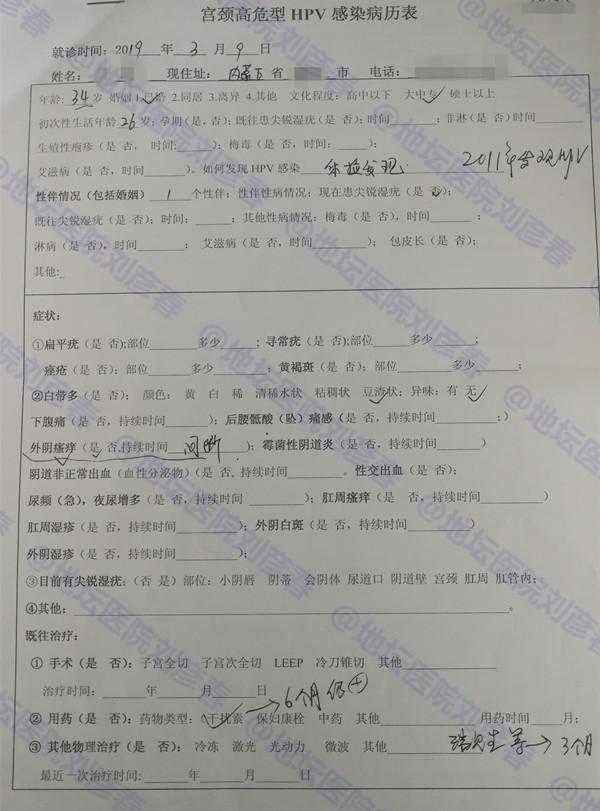 宫颈高危型 HPV 感染病历表
就诊时间：2019 年 3 月 9 日
姓名： 现住址：内蒙古 省 市 电话：
年龄：34岁 婚姻 1.已婚 2.同居 3.离异 4.其他 文化程度：高中以下 大中专 硕士以上
初次性生活年龄 26 岁；孕期（是，否）；既往患尖锐湿疣（是 否）；时间 ；非淋（是 否）时间
生殖性疱疹（是 否， 时间： ）；梅毒（是 否，时间： ）；
艾滋病（是 否，时间 ）。如何发现 HPV 感染 体检发现 2011年发现HPV
性伴情况（包括婚姻） 1 个性伴；性伴性病情况：现在患尖锐湿疣（是 否）；
既往尖锐湿疣（是 否）；时间： ；其他性病情况：梅毒（是 否），时间 ；
淋病（是 否），时间 ； 艾滋病（是 否，时间 ）； 包皮长（是 否）；
其他:
症状：
①扁平疣（是 否）；部位 多少 ；寻常疣（是 否）；部位 多少 ；
痤疮（是 否）：部位 多少 ； 黄褐斑（是 否）；部位 多少 ；
②白带多（是 否）； 颜色： 黄 白 稀 清稀水状 粘稠状 豆渣状；异味：有 无
下腹痛（是 否，持续时间 ）；后腰骶酸（坠）痛感（是 否，持续时间 ；）
外阴瘙痒（是 否，持续时间 间断 ）；霉菌性阴道炎（是 否，持续时间 ）
阴道非正常出血（血性分泌物）（是 否，持续时间 。性交出血（是 否）；
尿频（急），夜尿增多（是 否，持续时间 ）；肛周瘙痒（是 否，持续时间 ）
肛周湿疹（是 否，持续时间 ）；外阴白斑（是 否，持续时间 ）
外阴湿疹（是 否，持续时间 ）；
③目前有尖锐湿疣：（否 是）部位：小阴唇 阴蒂 会阴体 尿道口 阴道壁 宫颈 肛周 肛管内；
④其他： 。
既往治疗：
① 手术（是 否）：子宫全切 子宫次全切 LEEP 冷刀锥切 其他
治疗时间： 年 月 日
→6个月仍⊕
② 用药（是 否）：药物类型： 干扰素 保妇康栓 中药 其他 用药时间 月；
③ 其他物理治疗（是 否）： 冷冻 激光 光动力 微波 其他 等→3个月
最近一次治疗时间： 年 月 日
@地坛医院刘彦春